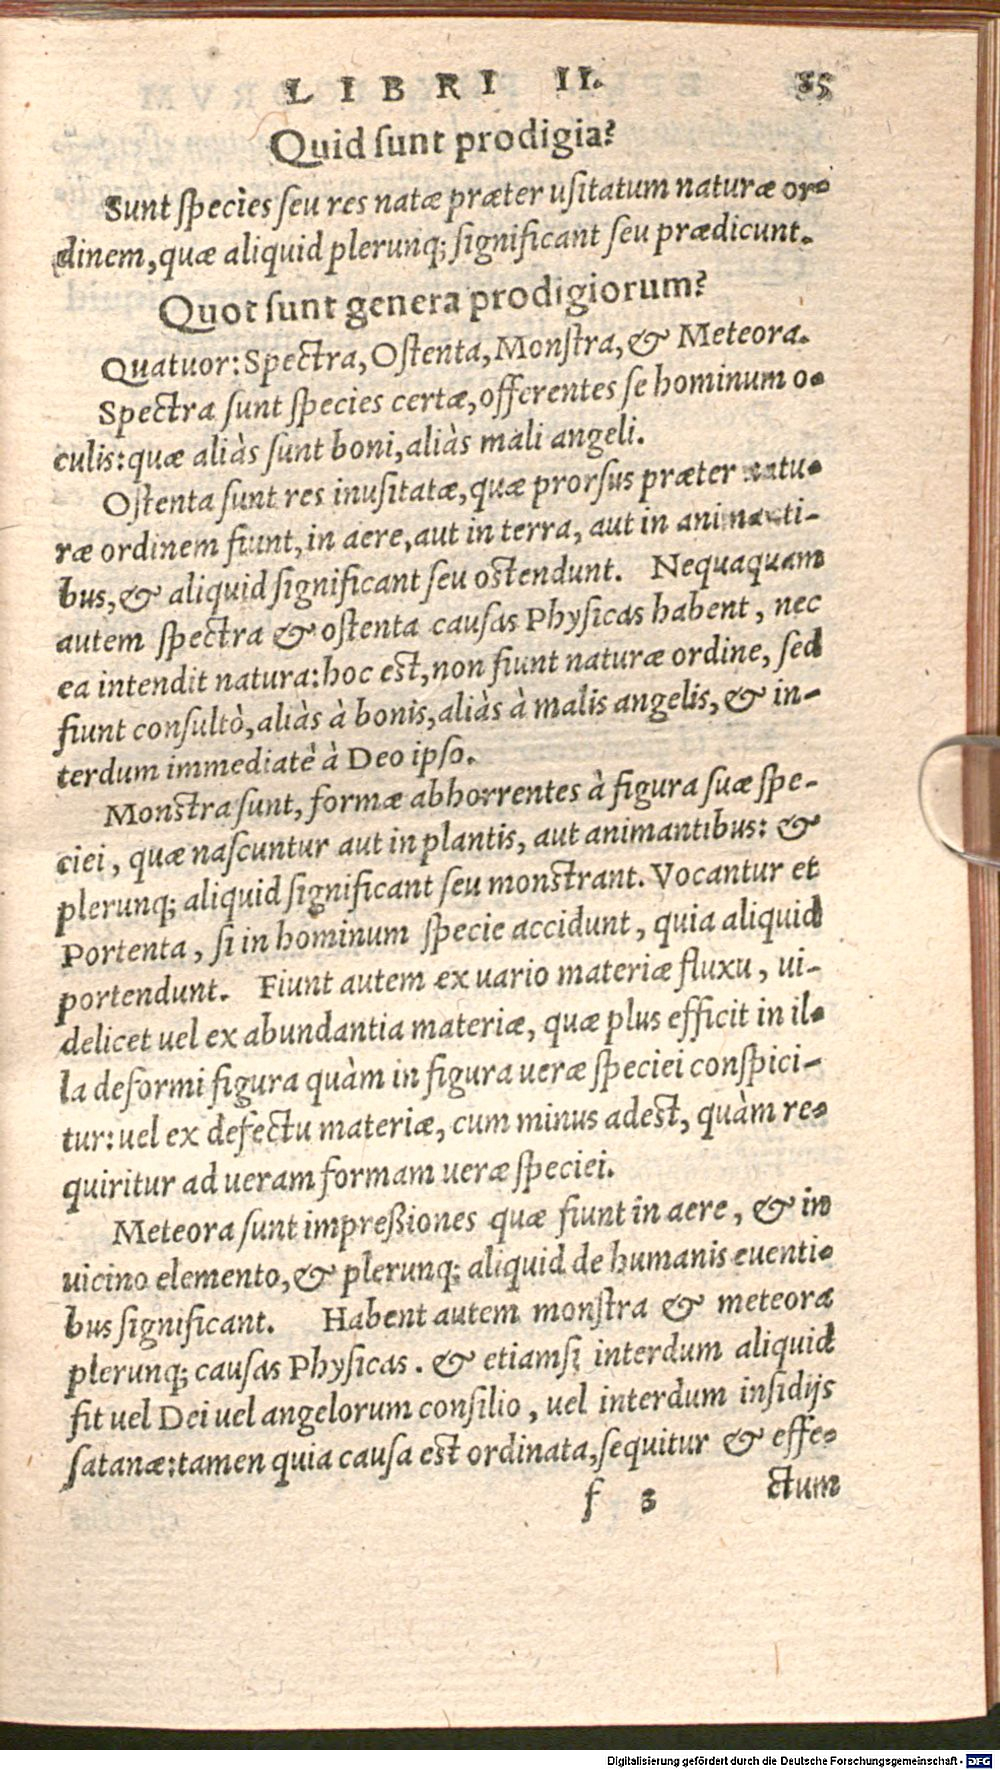 LIBRI II. 85
Quid ſunt prodigia?
Sunt ſpecies ſeu res natæ præter uſitatum naturæ or-
dinem, quæ aliquid plerunq; ſignificant ſeu prædicunt.
Quot ſunt genera prodigiorum?
Quatuor: Spectra, Oſtenta, Monſtra, & Meteora.
Spectra ſunt ſpecies certæ, offerentes ſe hominum o-
culis: quæ aliàs ſunt boni, aliàs mali angeli.
Oſtenta ſunt res inuſitatæ, quæ prorſus præter natu-
ræ ordinem fiunt, in aere, aut in terra, aut in animanti-
bus, & aliquid ſignificant ſeu oſtendunt. Nequaquam
autem ſpectra & oſtenta cauſas Phyſicas habent, nec
ea intendit natura: hoc eſt, non fiunt naturæ ordine, ſed
fiunt conſultò, aliàs à bonis, aliàs à malis angelis, & in-
terdum immediatè à Deo ipſo.
Monſtra ſunt, formæ abhorrentes à figura ſuæ ſpe-
ciei, quæ naſcuntur aut in plantis, aut animantibus: &
plerunq; aliquid ſignificant ſeu monſtrant. Vocantur et
Portenta, ſi in hominum ſpecie accidunt, quia aliquid
portendunt. Fiunt autem ex uario materiæ fluxu, ui-
delicet uel ex abundantia materiæ, quæ plus efficit in il-
la deformi figura quàm in figura ueræ ſpeciei conſpici-
tur: uel ex defectu materiæ, cum minus adeſt, quàm re-
quiritur ad ueram formam ueræ ſpeciei.
Meteora ſunt impreßiones quæ fiunt in aere, & in
uicino elemento, & plerunq; aliquid de humanis euenti-
bus ſignificant. Habent autem monſtra & meteora
plerunq; cauſas Phyſicas. & etiamſi interdum aliquid
fit uel Dei uel angelorum conſilio, uel interdum inſidijs
ſatanæ: tamen quia cauſa eſt ordinata, ſequitur & effe-
f 3 ctum
Digitalisierung gefördert durch die Deutsche Forschungsgemeinschaft - DFG